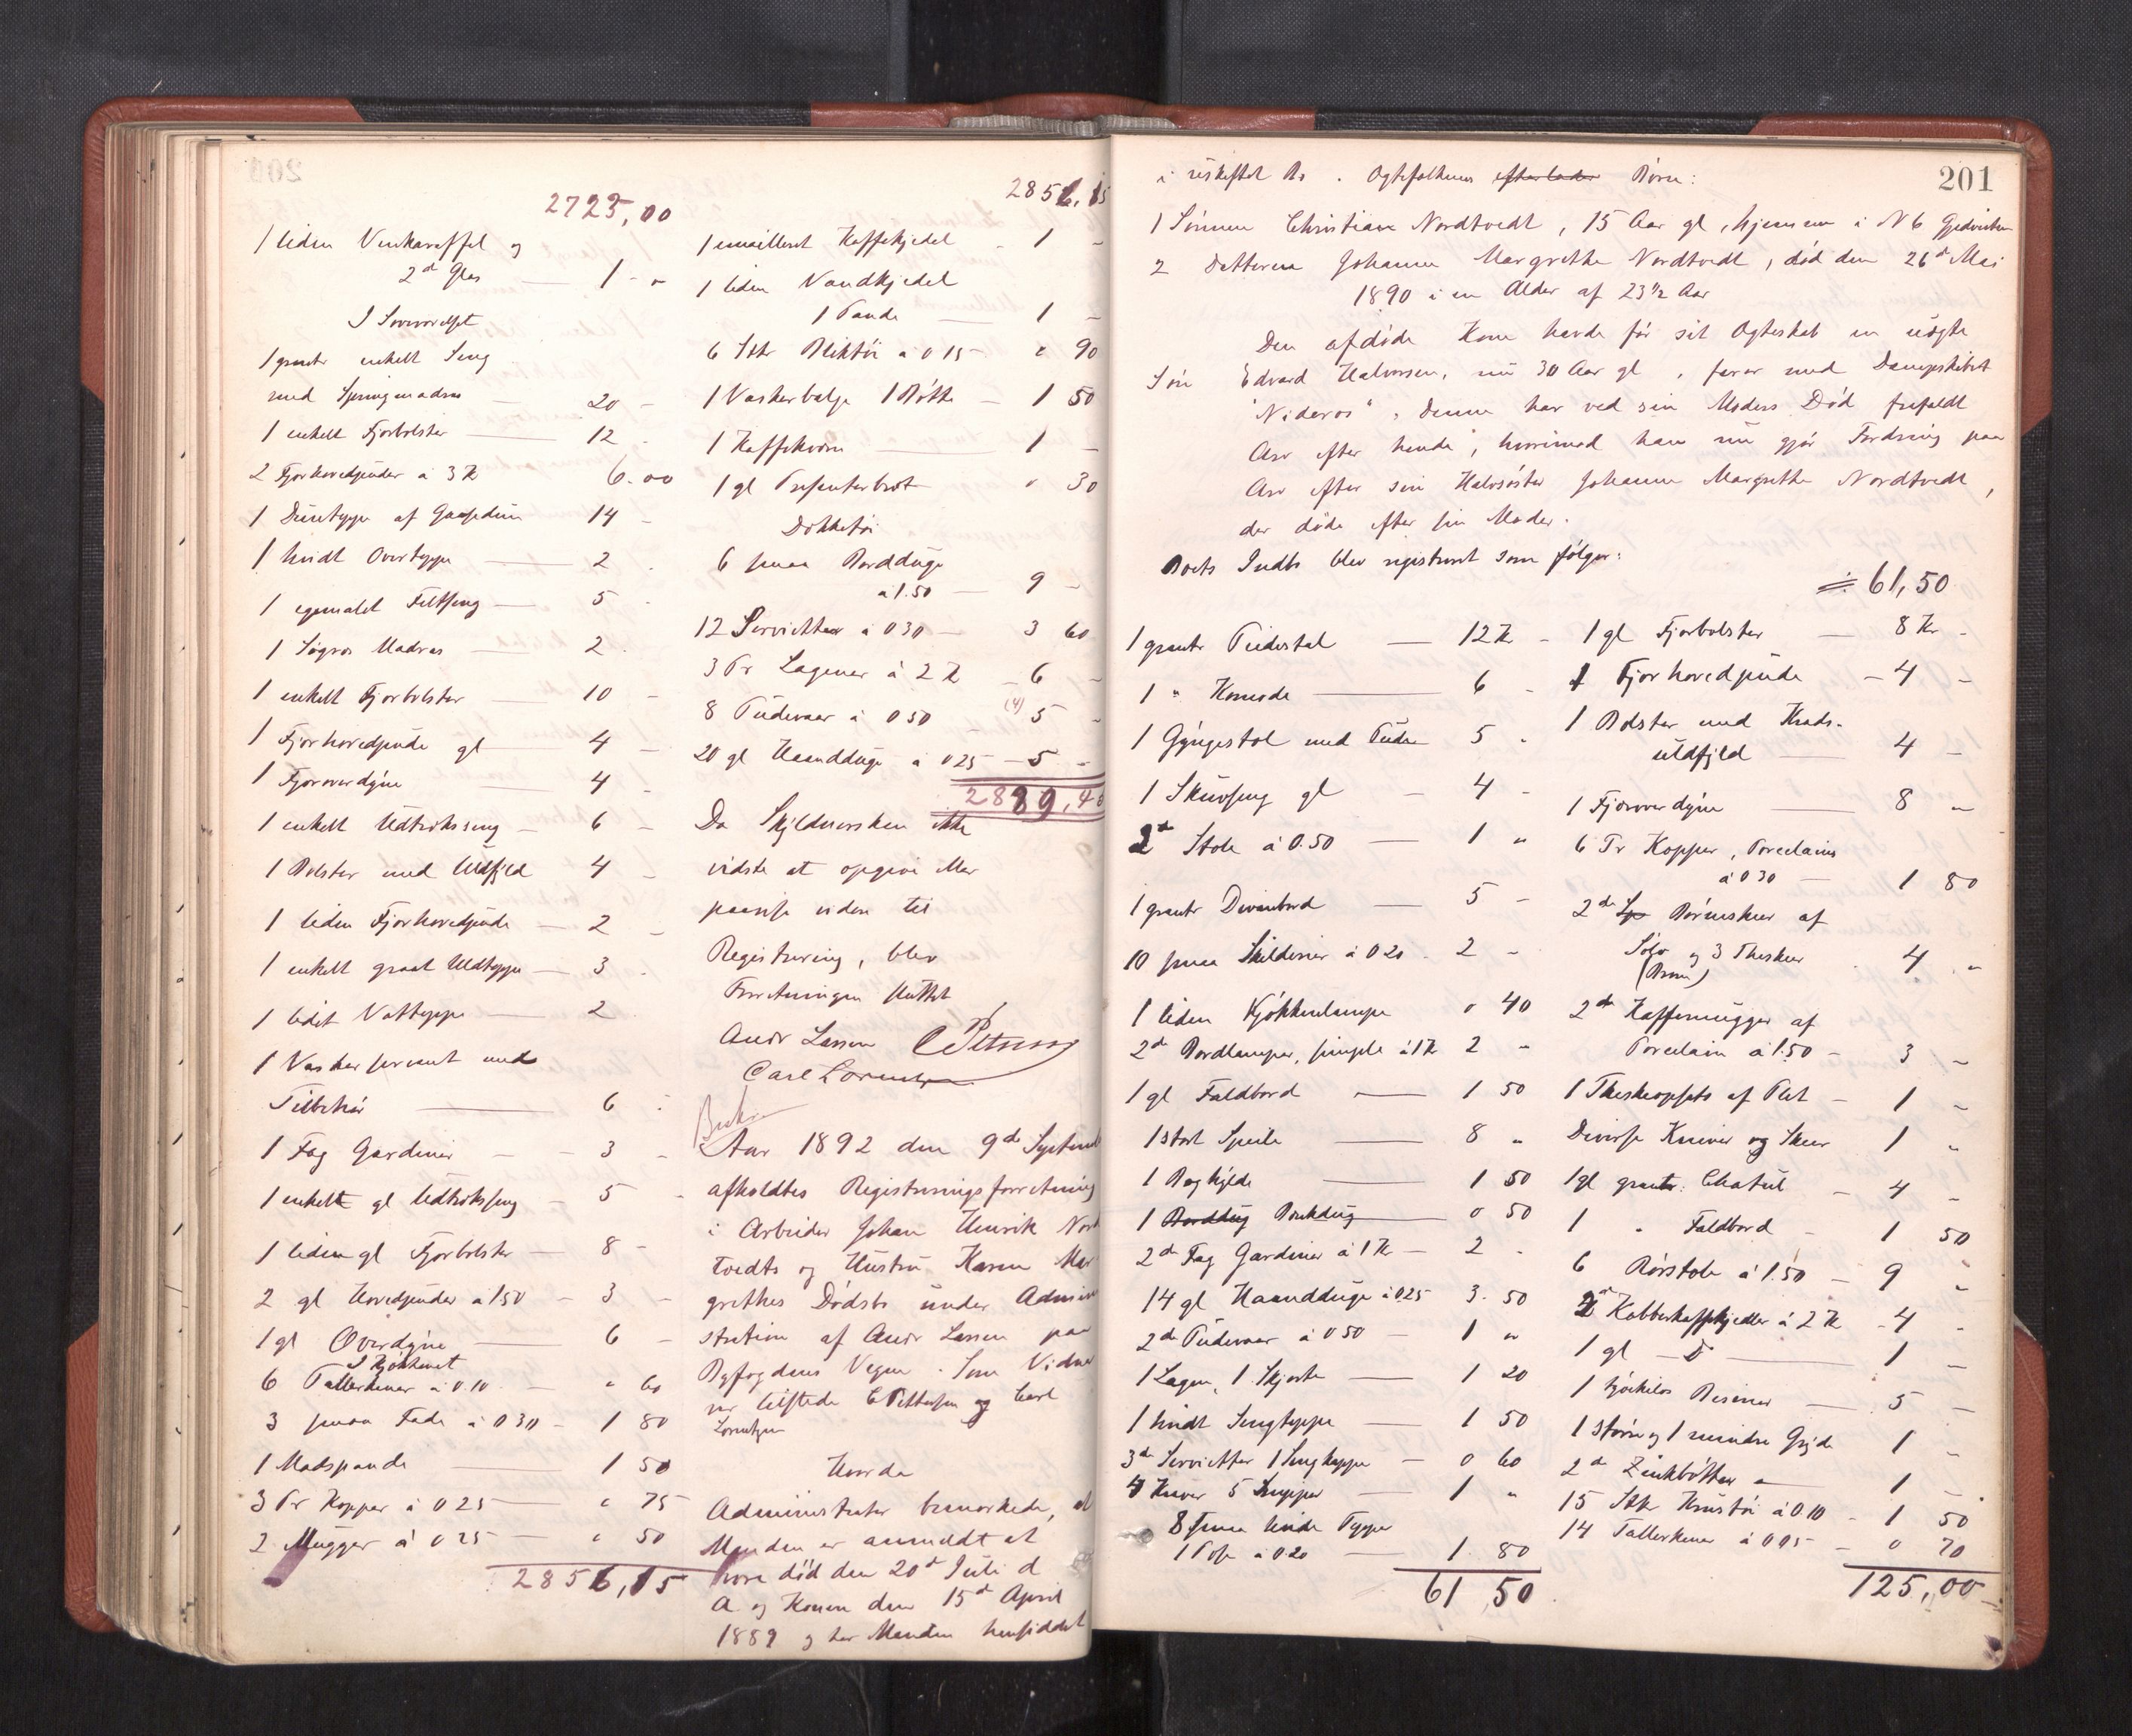 2723,00
1 liden Vinkaraffel og
2de Glas — 1 - "
I Soveværelset
1 grantr enkelt Seng
med Springmadras — 20 -
1 enkelt Fjærbolster — 12 -
2 Fjærhovedpuder à 3 Kr 6.00
1 Dunteppe af Gaasedun 14 -
1 hvidt Overteppe — 2 -
1 egemalet Feltseng — 5 -
1 Søgræs Madras — 2 -
1 enkelt Fjærbolster — 10 -
1 Fjærhovedpude gl — 4 -
1 Fjæroverdyne — 4 -
1 enkelt Udtræksseng — 6 -
1 Bolster med Uldfyld 4 -
1 liden Fjærhovedpude — 2 -
1 enkelt graat Uldteppe — 3 -
1 lidet Vatteppe — 2
1 Vaskeservant med
Tilbehør — 6 -
1 Fag Gardiner — 3 -
1 enkelt gl Udtræksseng — 5 -
1 liden gl Fjærbolster — 8 -
2 gl Hovedpuder à 1 50 — 3 -
1 gl Overdyne — 6 -
I Kjøkkenet
6 Tallerkener à 0.10 — " 60
3 smaa Fade à 0 30 — 1 80
1 Madspande — 1 50
3 Pr Kopper à 0 25 — " 75
2 Mugger à 0 25 — " 50
2856,15
2856,15
1 emailleret Kaffekjedel - 1 -
1 liden Vandkjedel
1 Pande — 1 -
6 Stk Bliktøi à 0 15 - " 90
1 Vaskerbalje 1 Bøtte — 1 50
1 Kaffekværn — 1 -
1 gl Presenterbret " 30
Dækketøi
6 smaa Bordduge
à 1.50 — 9 -
12 Servietter à 0 30 — 3 60
3 Pr Lagener à 2 Kr — 6 -
8 Pudevaar à 0 50 (4) 5 -
20 gl Haandduge à 0 25 — 5 -
2889,40
Da Skyldnersken ikke
vidste at opgive Mer
paavise viden til
Registrering, blev
Forretningen sluttet
Andr Larsen CPettersen
Carl Lorentzen
Aar 1892 den 9de Septemb
afholdtes Registreringsforretning
i Arbeider Johan Henrik Nord
tvedts og Hustru Karen Mar
grethes Dødsbo under Admini
stration af Andr Larsen paa
Byfogdens Vegne. Som Vidner
var tilstede C Pettersen og Carl
Lorentzen
Hvorda
Administrator bemærkede, at
Manden er anmeldt at
være død den 20de Juli d
A. og Konen den 15de April
1889 og har Manden hensiddet
201
i uskiftet Bo. Ægtefolkenes efterlader Børn:
1 Sønnen Christian Nordtvedt, 15 Aar gl, hjemme i N 6
2 Datteren Johanne Margrethe Nordtvedt, død den 26de Mai
1890 i en Alder af 23 1/2 Aar
Den afdøde Kone havde før sit Ægteskab en uægte
Søn Edvard Halvorsen, nu 30 Aar gl, farer med Dampskibet
"Nidaros", denne har ved sin Moders Død frafaldt
Arv efter hende, hvorimod han nu gjør Fordring paa
Arv efter sin Halvsøster Johanne Margrethe Nordtvedt,
der døde efter sin Moder.
Boets Indbo blev registreret som følger:
1 grantr Pidestal — 12 Kr -
1 " Komode — 6 -
1 Gyngestol med Pude 5 -
1 Skuvseng gl — 4 -
2de Stole à 0.50 — 1 "
1 grantr Divanbord — 5 -
10 smaa Skilderier à 0 20 - 2 -
1 liden Kjøkkenlampe 0 40
2de Bordlamper, simple à 1 Kr 2 -
1 gl Faldbord — 1 50
1 stort Speile — 8 "
1 Boghylde — 1 50
1 Borddug Voxdug — 0 50
2de Fag Gardiner à 1 Kr — 2 -
14 gl Haandduge à 0.25 3. 50
2de Pudevaar à 0 50 — 1 "
1 Lagen, 1 Skjorte — 1 20
1 hvidt Sengteppe — 1 50
3de Servietter 1 Sengkappe — 0 60
4 Knive 5 — 1 "
8 smaa hvide Tepper
1 Pose à 0 20 — 1 80
61 50
÷ 61,50
1 gl Fjærbolster — 8 Kr -
1 Fjærhovedpude — 4 -
1 Bolster med Krads-
uldfyld — 4 -
1 Fjæroverdyne — 8 "
6 Pr Kopper, Porcelains
à 0 30 — 1 80
2de Sp Børneskeer af
Sølv og 3 Theskeer - 4 "
2de Kaffemugger af
Porcelain à 1.50 — 3 "
1 Theskeopsats af Plet — 1 "
Diverse Kniver og Skeer 1 "
1 gl grantr. Chatul — 4 -
1 " Faldbord - 1 50
6 Rørstole à 1.50 — 9 "
2de Kobberkaffekjedler à 2 Kr - 4 -
1 gl — D — 1 -
1 Bismer — 5 -
1 større og 1 mindre Gryde 1 -
2de Zinkbøtter — 1 -
15 Stk Krustøi à 0.10 - 1 50
14 Tallerkener à 0 05 — 0 70
125,00